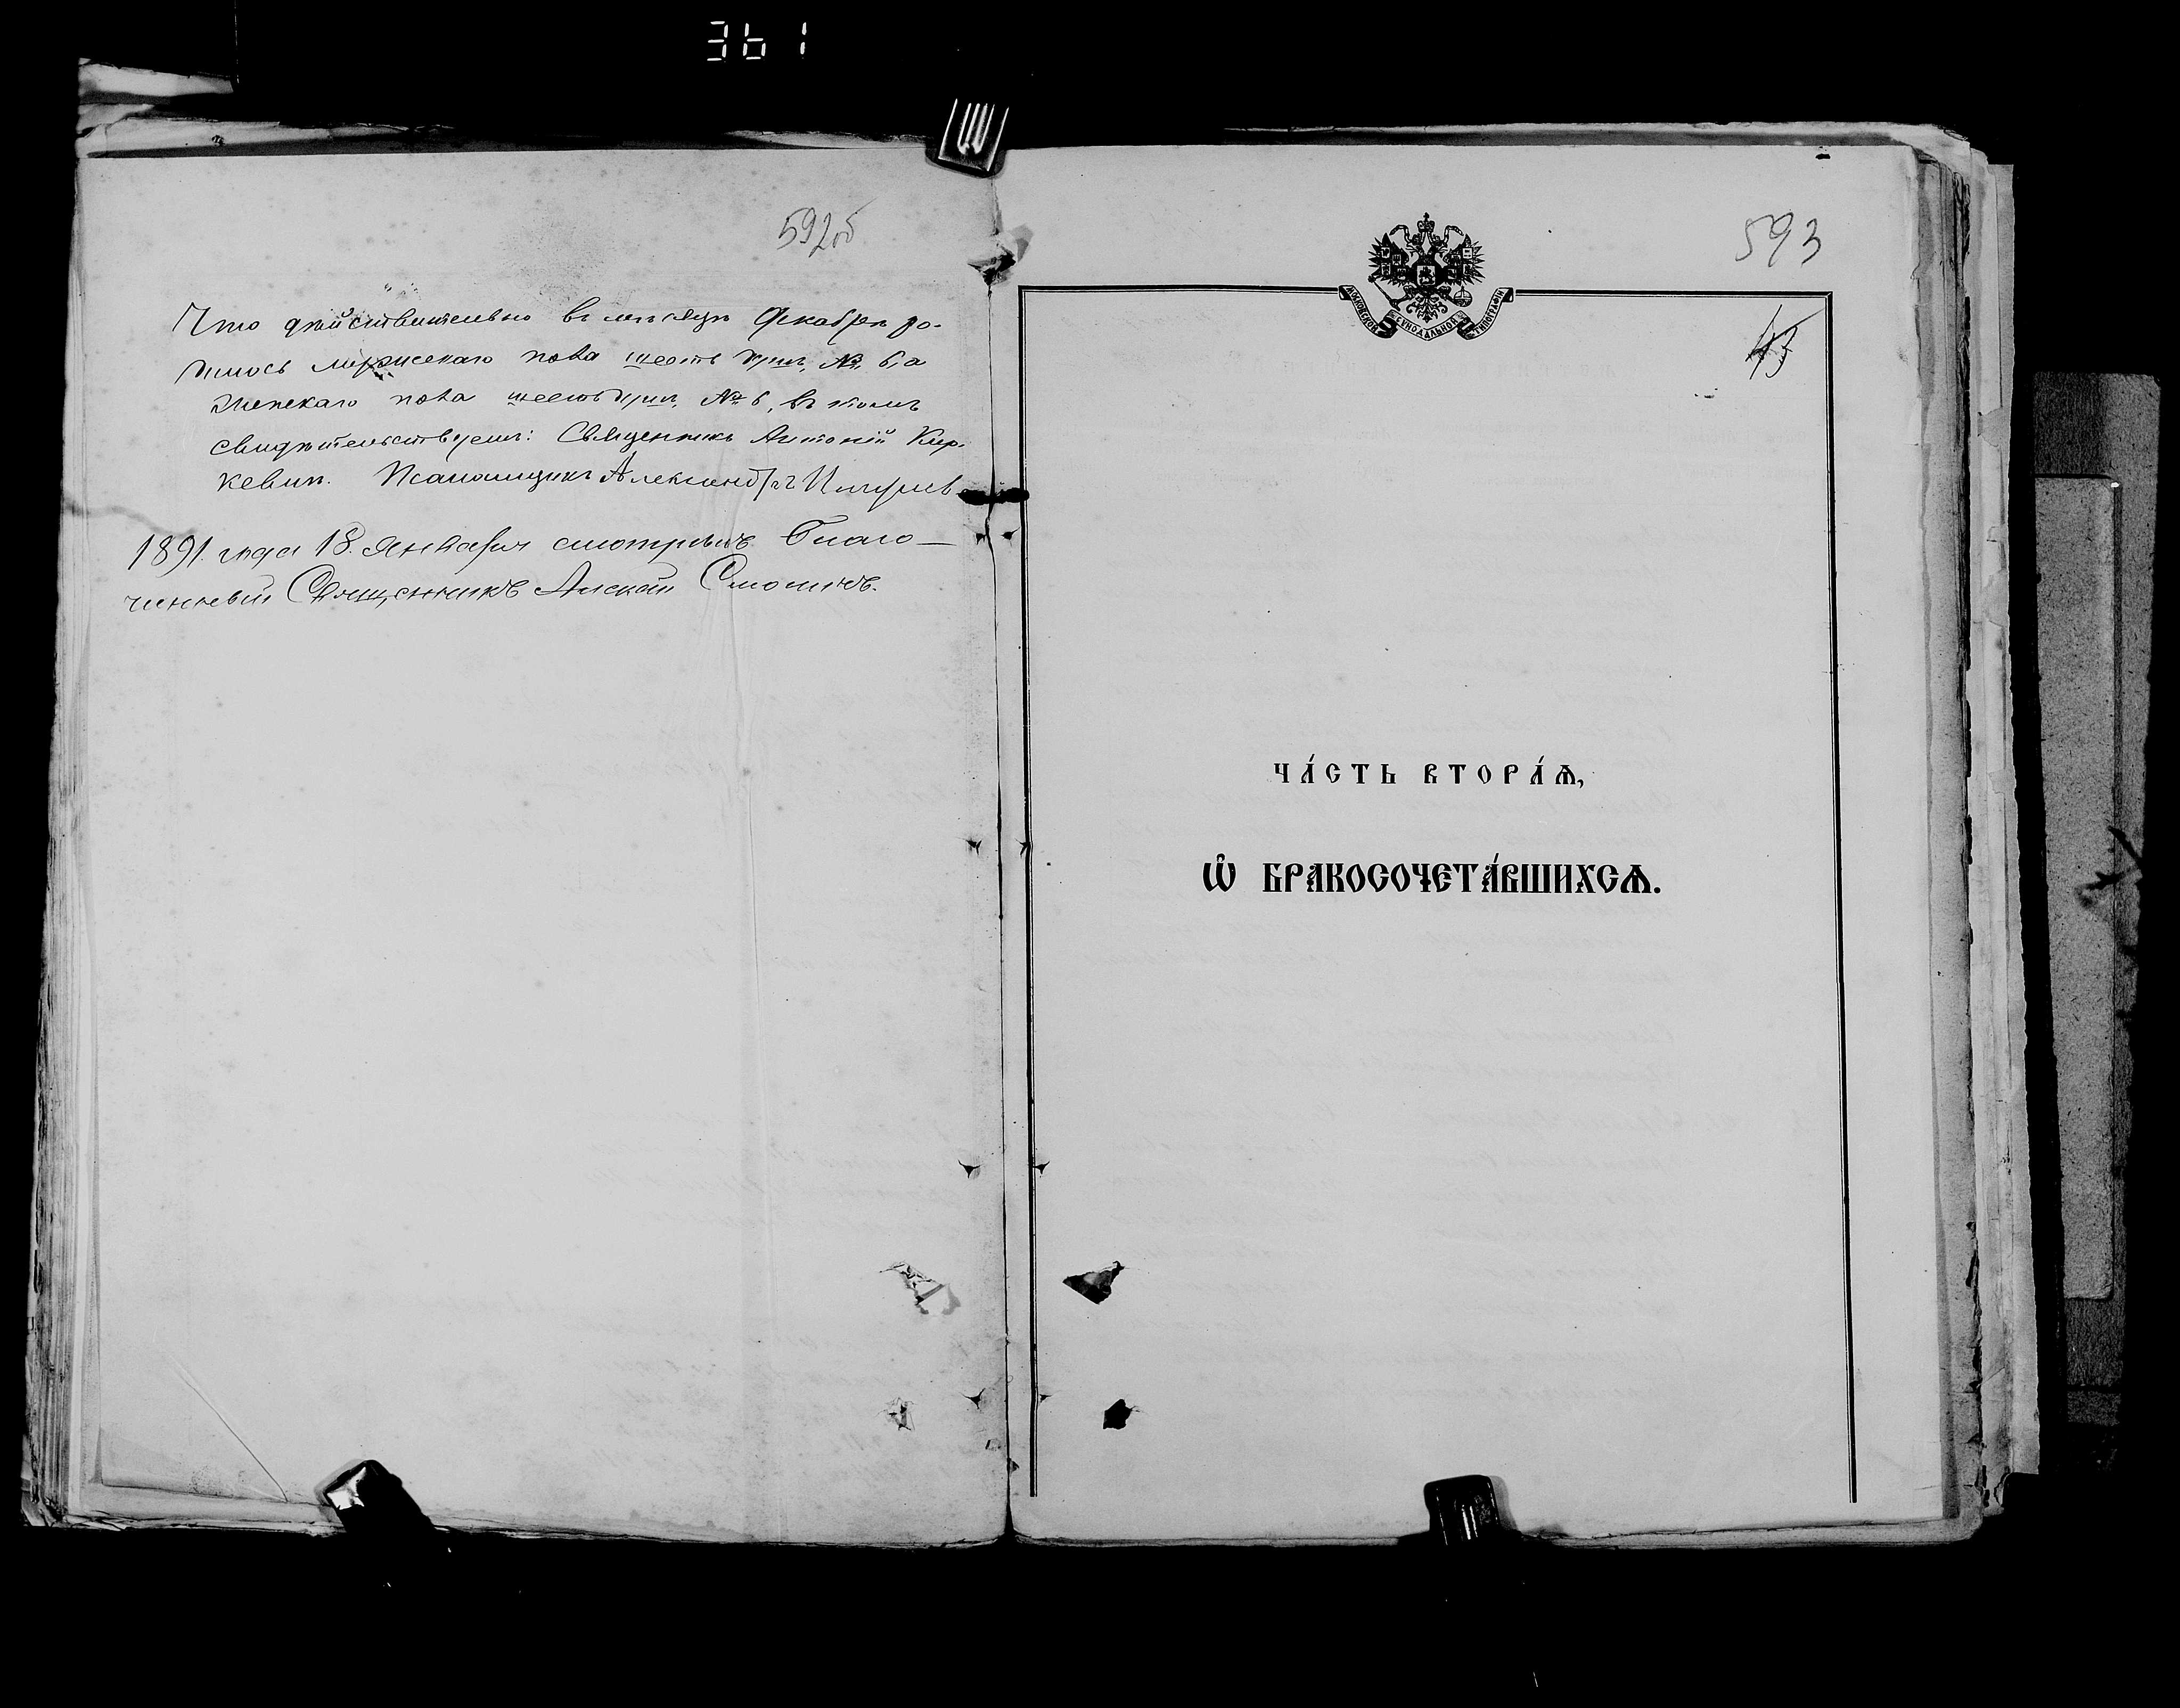 361
592об
Что дѣйствительно въ мѣсяцѣ Декабрѣ ро-
дилось мужескаго пола шесть душъ, № 6, а
женскаго пола шесть душъ, № 6, въ томъ
свидѣтельствуемъ: Священникъ Антоній
кевичъ. Псаломщикъ Александръ
1891 года 18 Января смотрѣлъ Благо-
чинный Священникъ Алексѣй Смоличъ.
593
МОСКОВСКОЙ СѴНОДАЛЬНОЙ ТИПОГРАФІИ
ЧА́СТЬ ВТОРА́Ѧ,
Ѽ БРАКОСОЧЕТА́ВШИХСѦ.